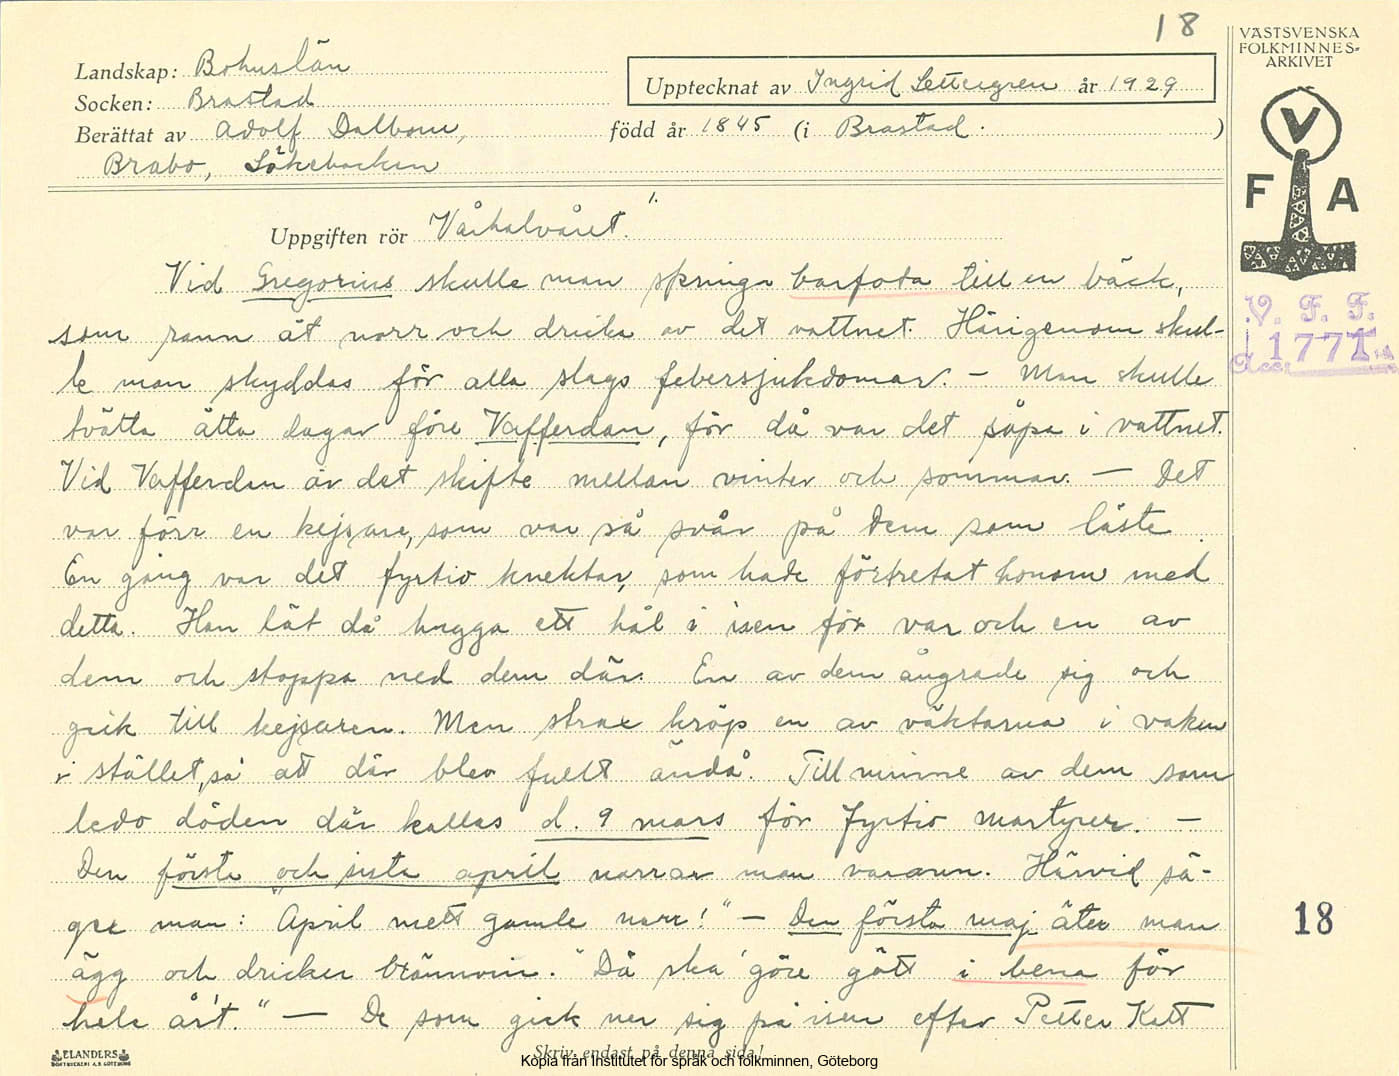 18
VÄSTSVENSKA
FOLKMINNES-
ARKIVET
Landskap: Bohuslän
Upptecknat av Ingrid Settergren år 1929
Socken: Brastad
Berättat av Adolf Dalbom, född år 1845 (i Brastad. )
Brabo, Sökebacken
V
F A
1.
Uppgiften rör Vårhalvåret.
Vid Gregorius skulle man springa barfota till en bäck,
som rann åt norr och dricka av det vattnet. Härigenom skul-
le man skyddas för alla slags febersjukdomar. – Man skulle
tvätta åtta dagar före Vafferdan, för då var det såpa i vattnet.
Vid Vafferdan är det skifte mellan vinter och sommar. – Det
var förr en kejsare, som var så svår på dem som läste.
En gång var det fyrtio knektar, som hade förtretat honom med
detta. Han lät då hugga ett hål i isen för var och en av
dem och stoppa ned dem där. En av dem ångrade sig och
gick till kejsaren. Men strax kröp en av väktarna i vaken
i stället, så att där blev fullt ändå. Till minne av dem som
ledo döden där kallas d. 9 mars för Fyrtio martyrer. –
Den första och sista april narrar man varann. Härvid sä-
ger man: "April mett gamle narr!" – Den första maj äter man
ägg och dricker brännvin. "Då ska göre gött i bena för
hele år't." – De som gick ner sig på isen efter Petter Katt
V. F. F.
Acc. 1771
18
ELANDERS
BOKTRYCKERI A.B. GÖTEBORG
Skriv endast på denna sida!
Kopia från Institutet för språk och folkminnen, Göteborg